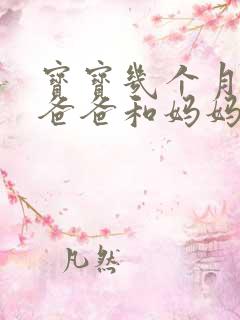 寶寶幾个月
爸爸和妈妈
凡然